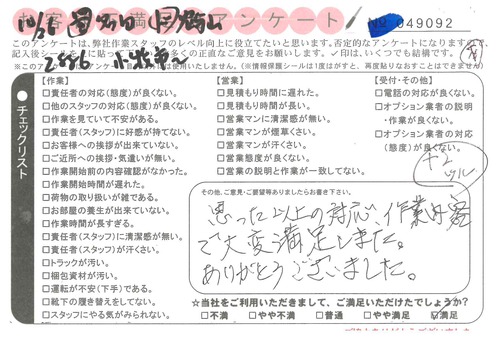 お客様満足アンケート
No 049092
このアンケートは、弊社作業スタッフのレベル向上に役立てたいと思います。否定的なアンケートになりますので、
【作業】
□責任者の対応(態度)が良くない。
□他のスタッフの対応(態度)が良くない。
□作業を見ていて不安がある。
□責任者(スタッフ)に好感が持てない。
□お客様への挨拶が出来ていない。
□ご近所への挨拶・気遣いが無い。
□作業開始前の内容確認がなかった。
□作業開始時間が遅れた。
□荷物の取り扱いが雑である。
□お部屋の養生が出来ていない。
□作業時間が長すぎる。
□責任者(スタッフ)に清潔感が無い。
□責任者(スタッフ)が汗さい。
□トラックが汚い。
□梱包資材が汚い。
□運転が不安(下手)である。
□靴下の履き替えをしてない。
□スタッフにやる気がみられない。
【営業】
□見積もり時間に遅れた。
□見積もり時間が長い。
□営業マンに清潔感が無い。
□営業マンが煙草くさい。
□営業マンが汗さい。
□営業態度が良くない。
□営業の説明と作業が一致してない。
【受付・その他】
□電話の対応が良くない。
□オプション業者の説明
・作業が良くない。
□オプション業者の対応
(態度)が良くない。
チェックリスト
その他、ご意見・ご要望等ありましたらお書き下さい。
思った以上の対応、作業内容
で大変満足しました。
ありがとうございました。
☆当社をご利用いただきまして、ご満足いただけたでしょうか?
□不満 □やや不満 □普通 □やや満足 □満足